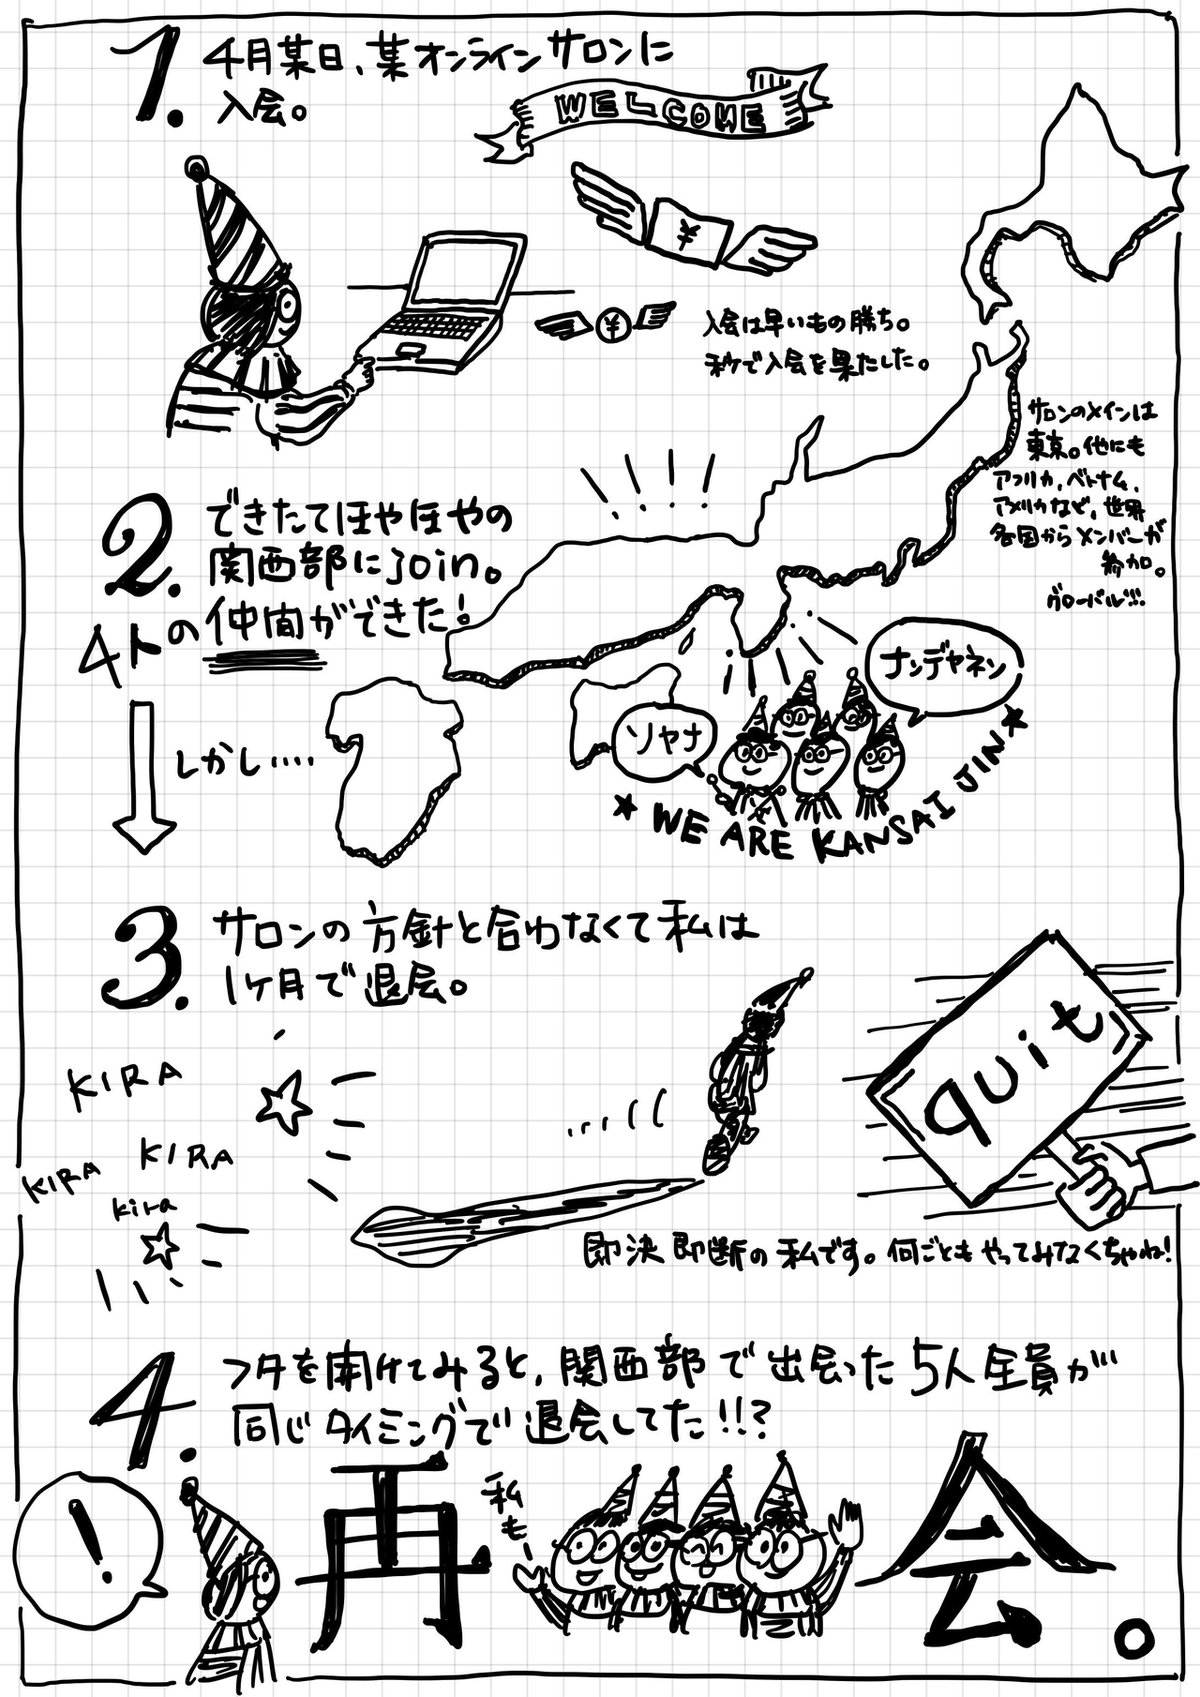 1.
4月某日、某オンラインサロンに
入会。
WELCOME
¥
¥
入会は早いもの勝ち。
秒で入会を果たした。
サロンのメインは
東京。他にも
アフリカ,ベトナム,
アメリカなど,世界
各国からメンバーが
参加。
グローバル!!!
2.
できたてほやほやの
関西部にJoin。
4トの仲間ができた!
ナンデヤネン
ソヤナ
★WE ARE KANSAI JIN★
しかし‥‥
3.
サロンの方針と合わなくて私は
1ヶ月で退会。
quit
KIRA
KIRA
KIRA
kira
即決即断の私です。何ごともやってみなくちゃね!
4.
フタを開けてみると,関西部で出会った5人全員が
同じタイミングで退会してた!!?
!
私もー
再会。